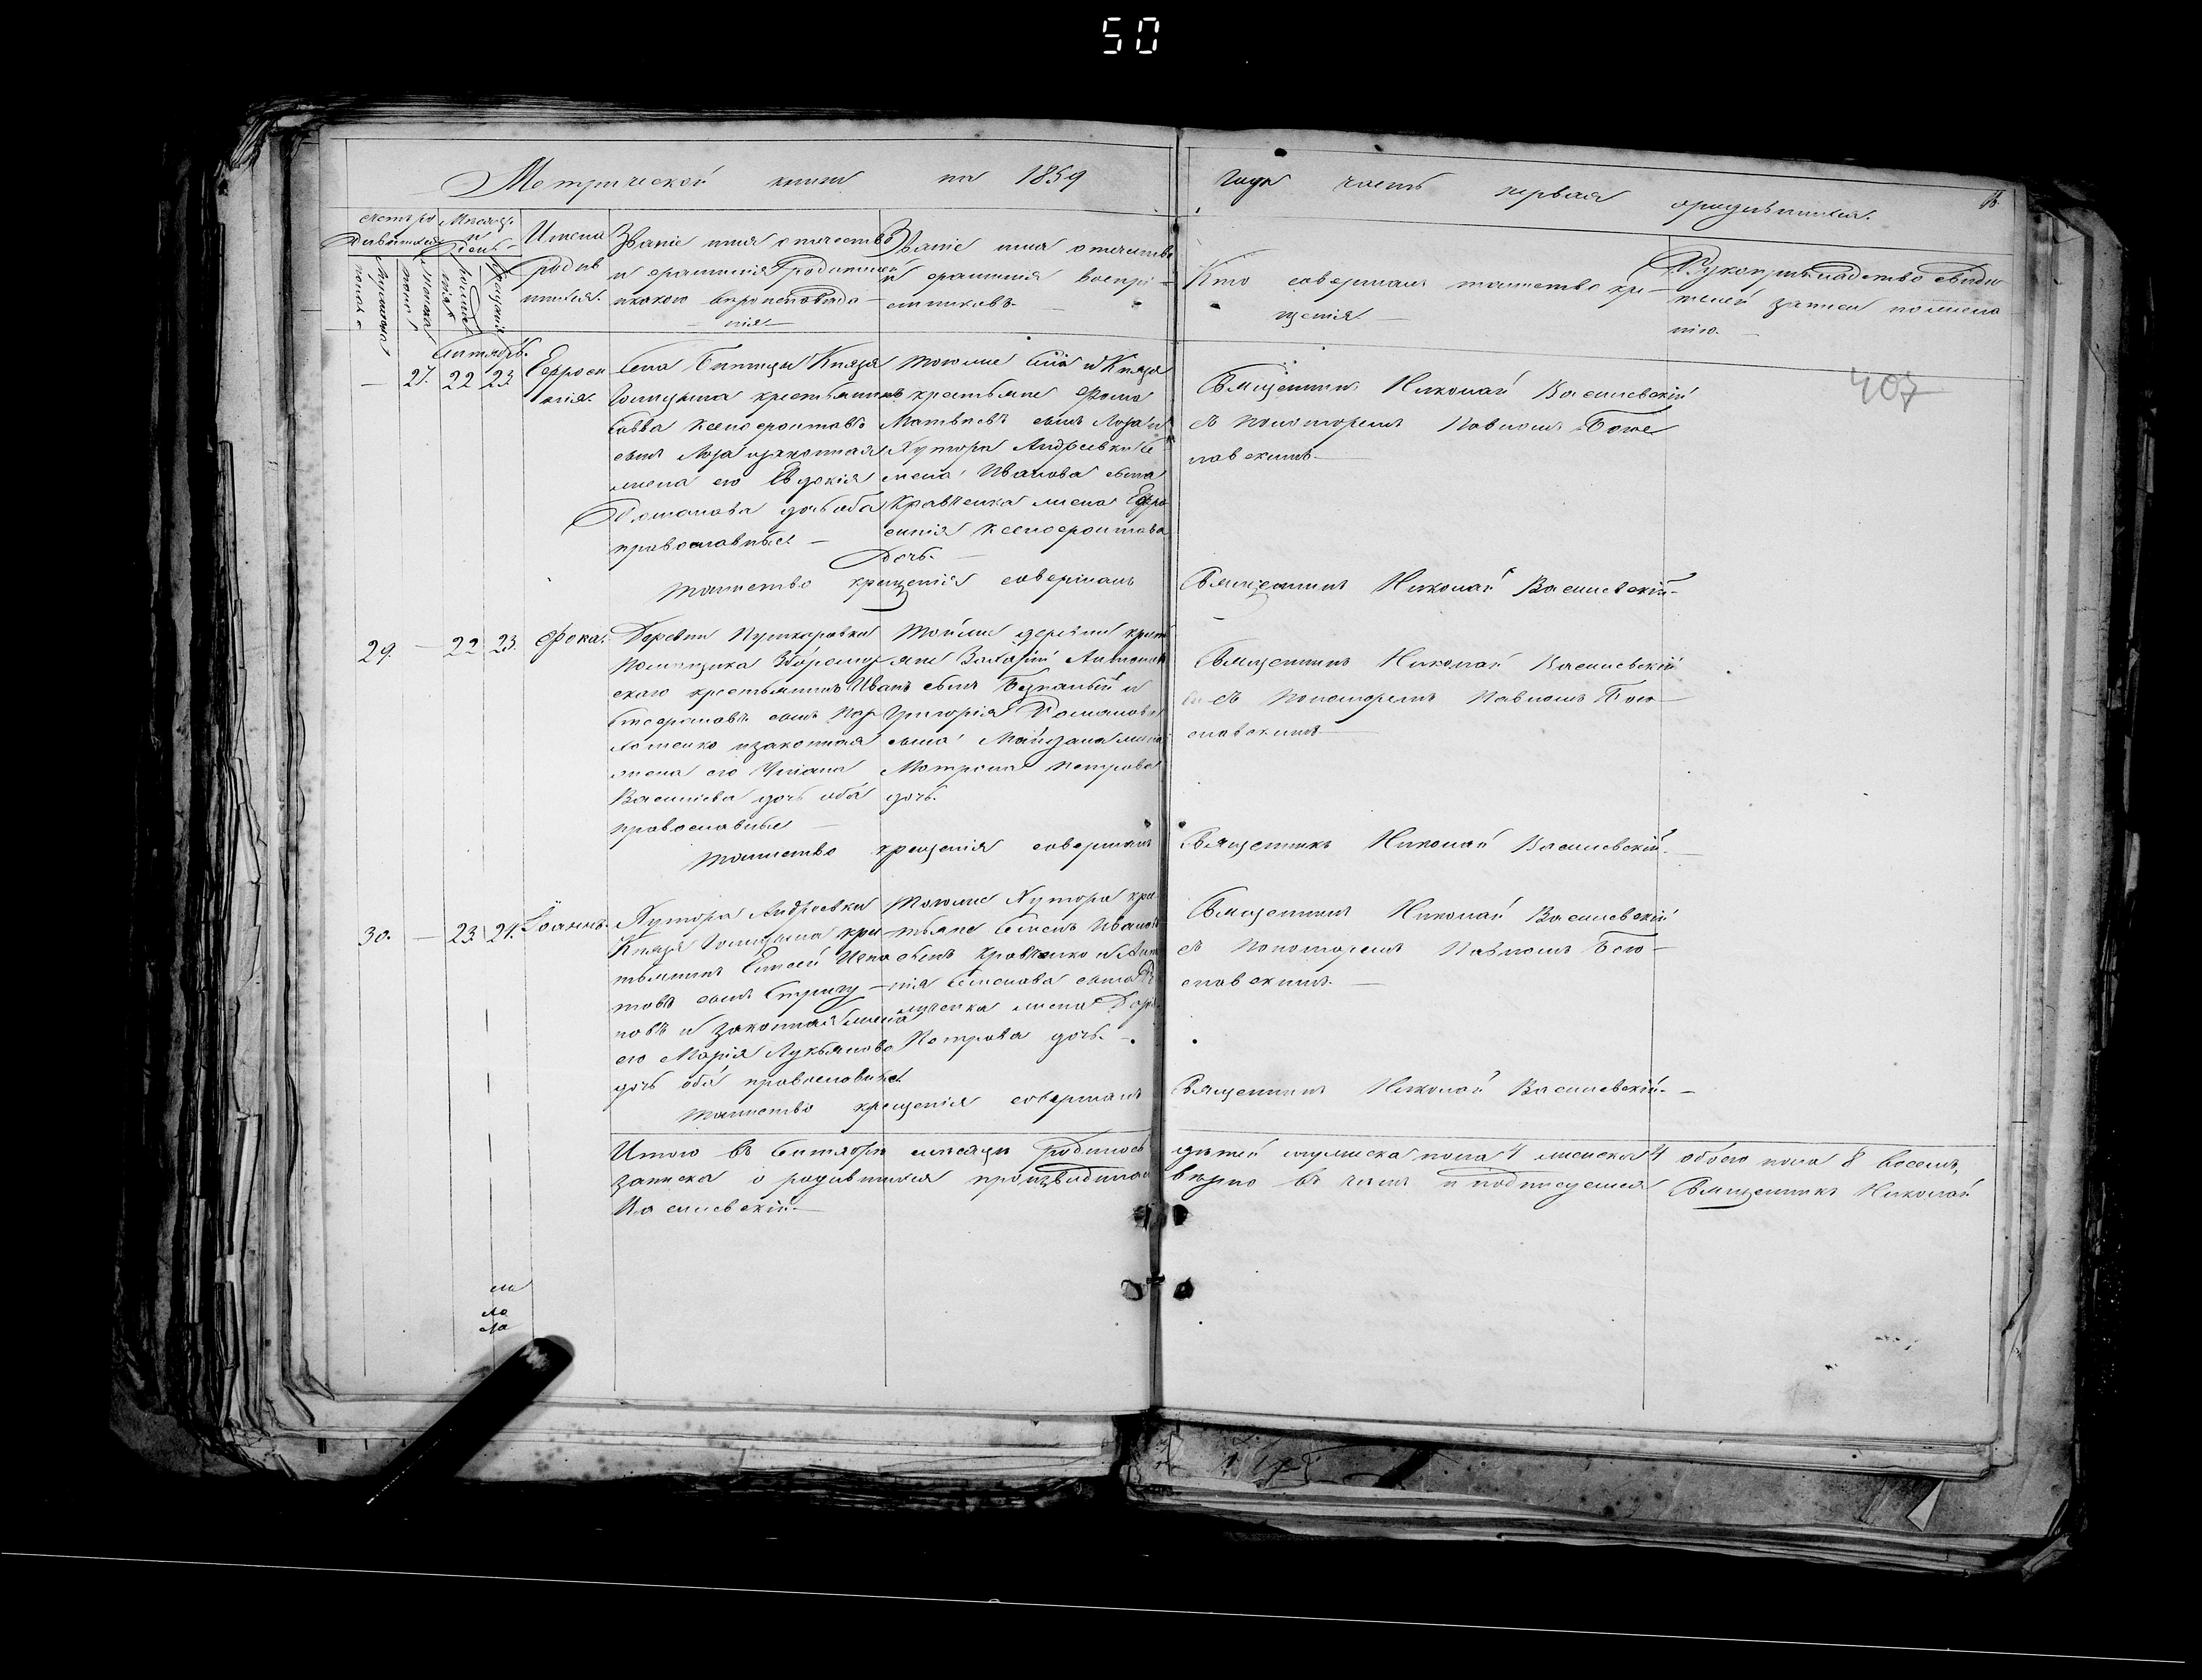 50
Метрической книги на 1859 года часть первая о родившихся.
Счетъ ро
дившихся
Мѣсяцъ
и
день
Имена
родив
шихся.
Званіе имя отчество
и фамилія родителей
и какого вѣроисповѣда
нія
Званіе имя отчество
и фамилія воспрі-
емниковъ
Кто совершалъ таинство кре-
щенія
Рукоприкладство свидѣ
телей записи по жела
нію.
407
Сентябрь.
27. 22 23
Евфроси
нія.
Села Князя
Голицына крестьянинъ
Савва Ксенофонтовъ
сынъ Лоза и законная
жена его Евдокія
Романова дочь оба
православные
тогоже села и Князя
крестьяне Фома
Матвѣевъ сынъ Лоза и
Хутора Андреевки Се
мена Иванова сына
Кравченка жена Евфро
синія Ксенофонтова
Дочь.
Священникъ Николай Василевскій
съ пономаремъ Павломъ Бого
словскимъ
таинство крещенія совершалъ Священникъ Николай Василевскій
29. — 22 23. Фока.
Деревни Пушкаровки
помѣщика
скаго крестьянинъ Иванъ
Стефановъ сынъ Пар
хоменко и законная
жена его Уліана
Василіева дочь оба
православные
тойже деревни крест
яне Захарій Антоновъ
сынъ Безпалый и
Григорія Романова
сына Майдана жена
Матрона Петрова
дочь.
Священникъ Николай Василевскій
съ пономаремъ Павломъ Бого
словскимъ
таинство крещенія совершалъ Священникъ Николай Василевскій
30. — 23 24. Іоаннъ.
Хутора Андреевки
Князя Голицына крес
тьянинъ Елисей Игна
товъ сынъ
и законная жена
его Марія Лукьянова
дочь оба православные
тогоже Хутора крес
тьяне Семенъ Ивановъ
сынъ Кравченко и
Семенова сына
жена
Петрова дочь.
Священникъ Николай Василевскій
съ пономаремъ Павломъ Бого
словскимъ.
таинство крещенія совершалъ Священникъ Николай Василевскій
Итого въ Сентябрѣ мѣсяцѣ родилось дѣтей мужеска пола 4 женска 4 обоего пола 8 восемь,
записка о родившихся производилась вѣрно въ чемъ и подписуемся Священникъ Николай
Василевскій